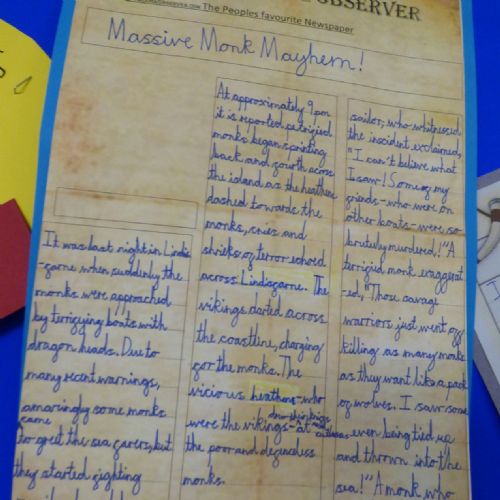 OBSERVER
OBSERVER.COM The Peoples favourite Newspaper
Massive Monk Mayhem!
It was last night in Lindis
-farne when suddenly the
monks were approached
by terrifying boats with
dragon heads. Due to
many recent warnings,
amazingly some monks
came
to greet the sea farers, but
they started fighting
At approximately 9pm
it is reported petrified
monks began sprinting
back and fourth across
the island as the heathens
dashed towards the
monks, cries and
shrieks of terror echoed
across Lindisfarne. The
vikings darted across
the coastline, charging
for the monks. The
vicious heathens-who
were the vikings-at
the poor and defenceless
monks.
sailor, who whitnessed
the incident exclaimed,
"I can't believe what
I saw! Some of my
friends-who were on
other boats-were so
brutely murdered!" A
terrified monk exaggerat
-ed, "Those savage
warriors just went off
killing as many monks
as they want like a pack
of wolves. I saw some
even being tied up
and thrown into the
sea!" A monk who